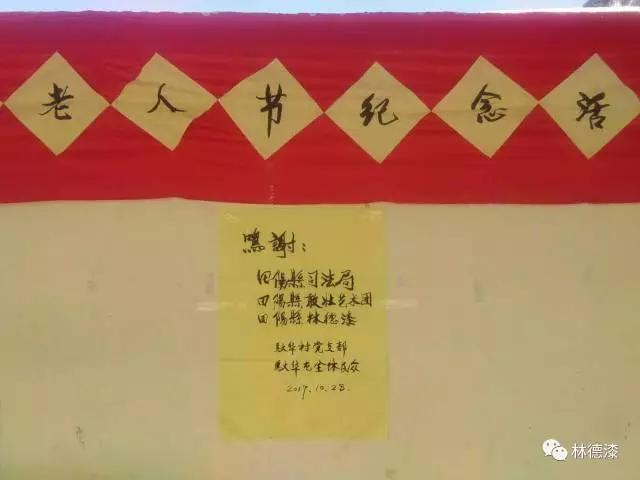 老人节纪念活
鸣謝:
田陽縣司法局
田陽縣敢壮艺术团
田陽縣林德漆
馱华村党支部
馱华屯全体民众
2017.10.28.
林德漆